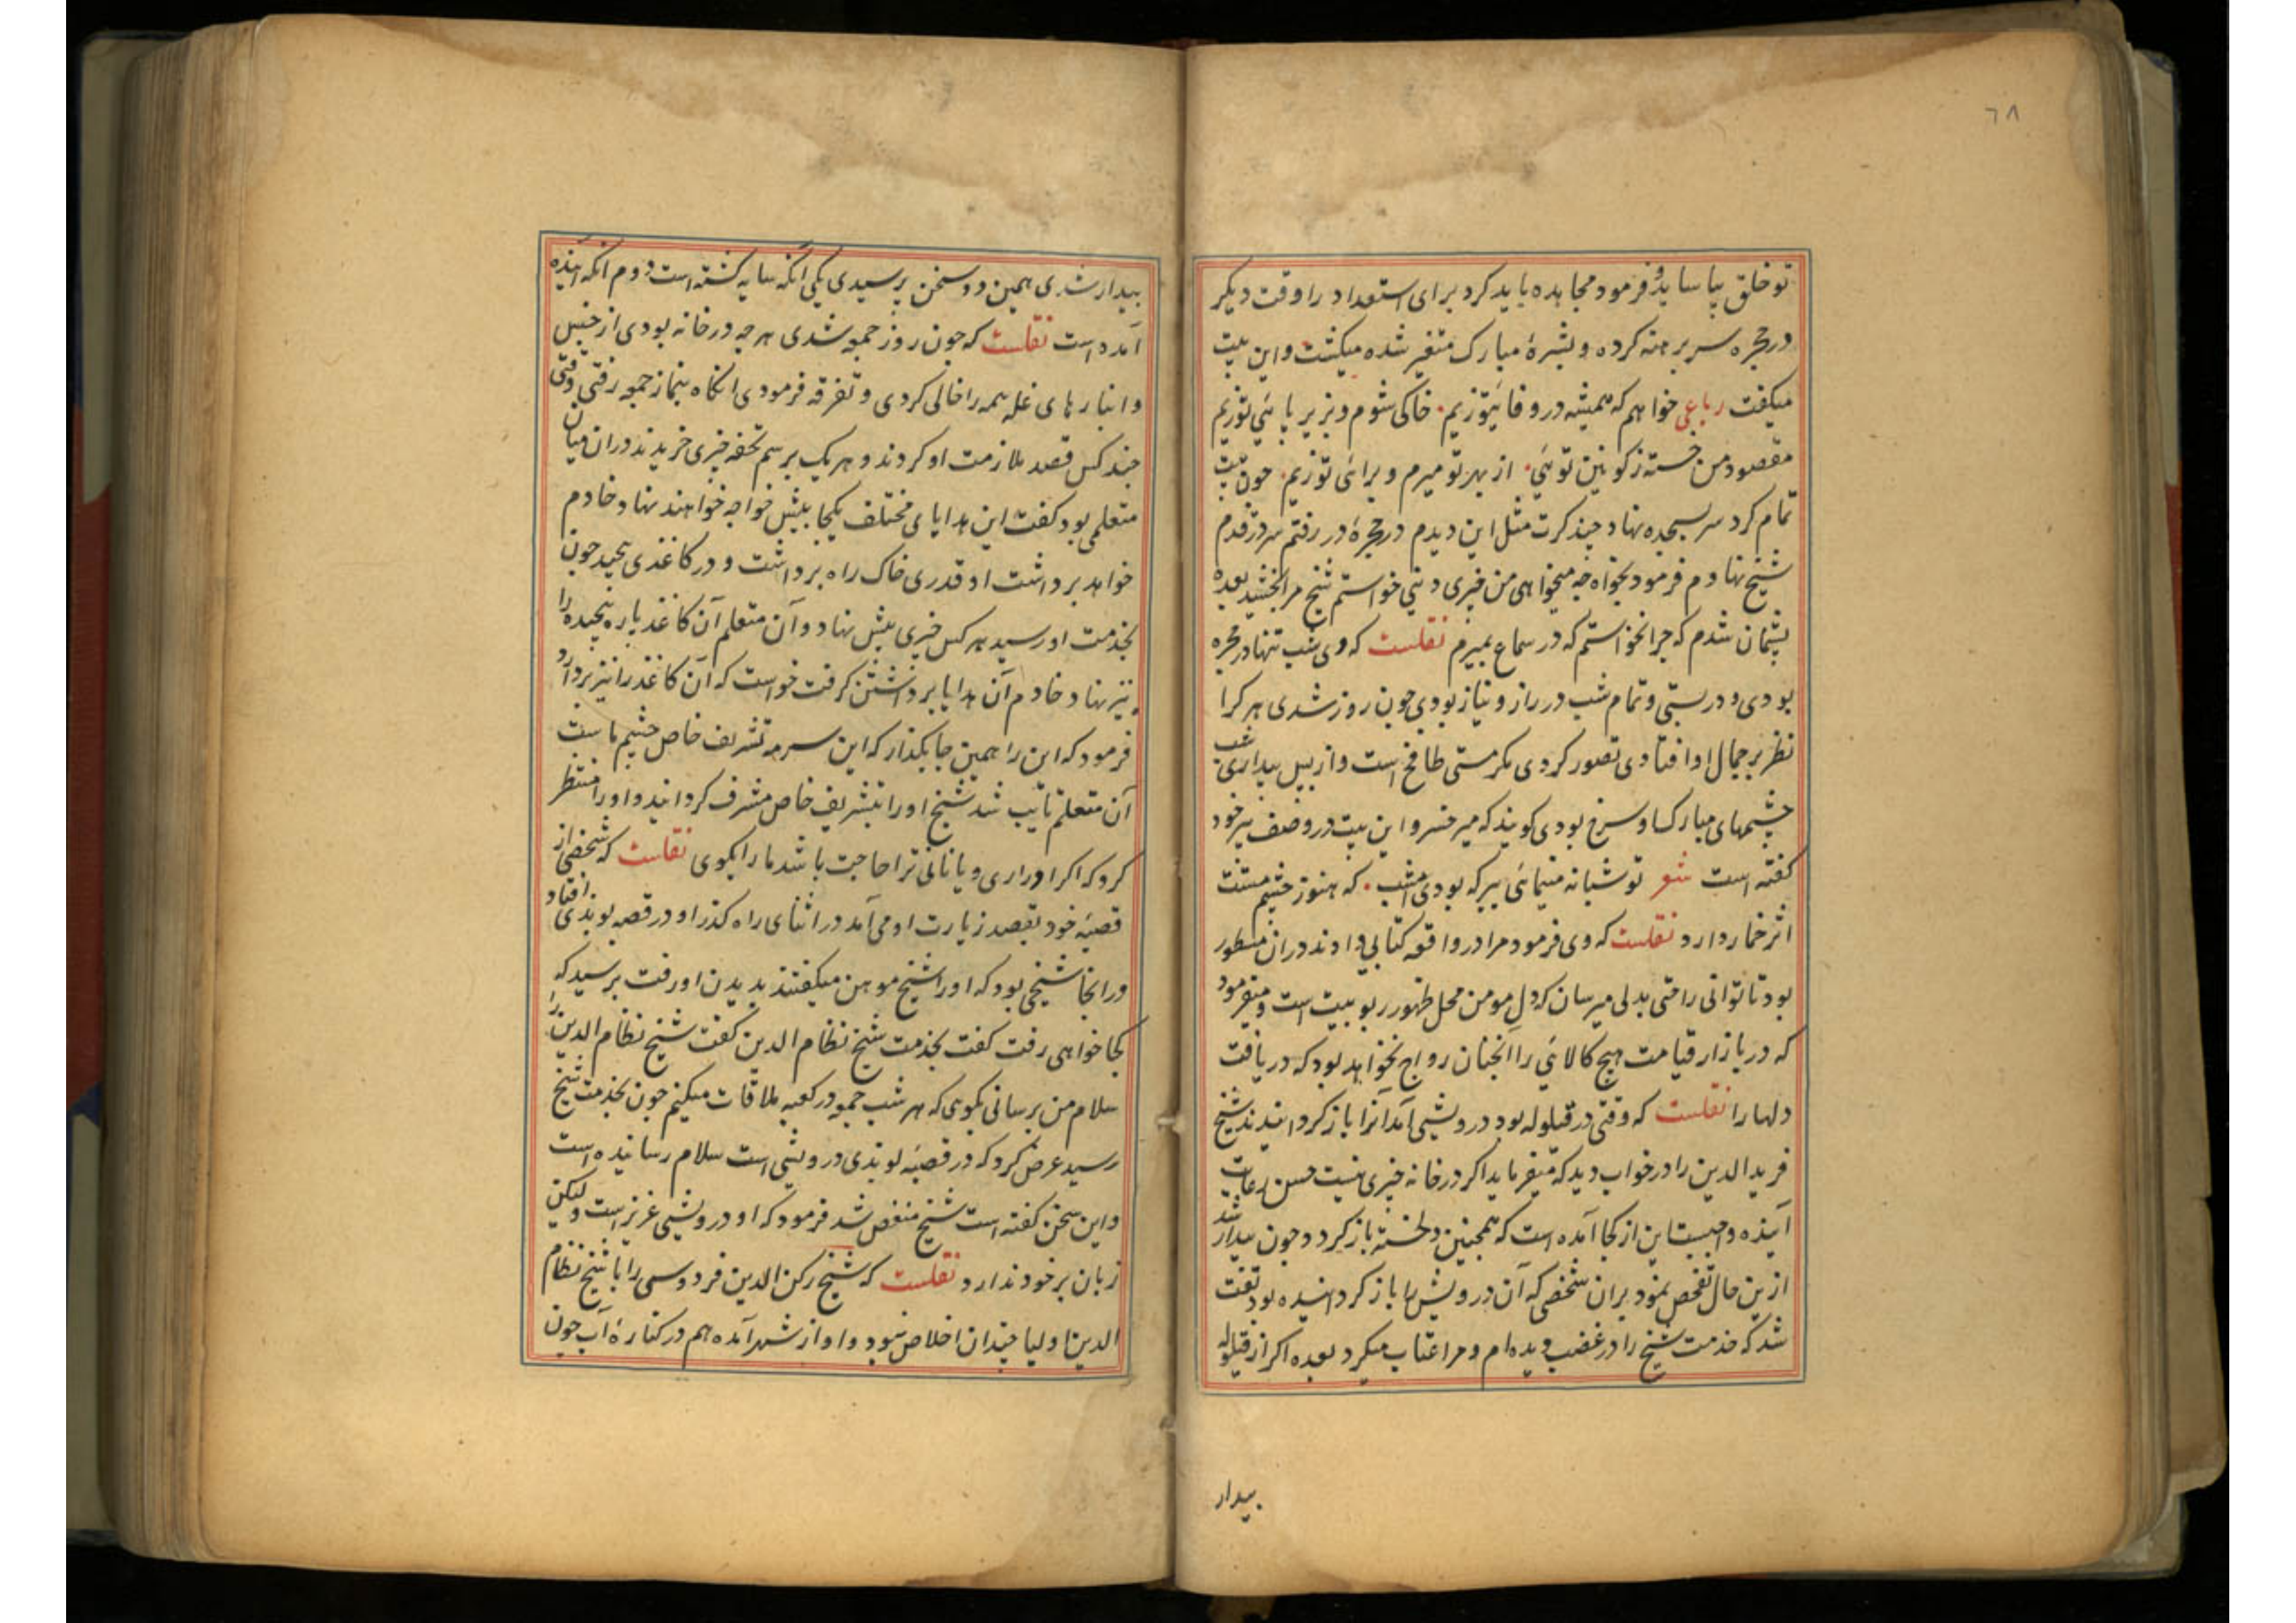 ٦٨
تو خلق بیاساید و فرمود مجاهده باید کرد برای استعداد را وقت دیکر
در حجره سر برهنه کرده و بشرهٔ مبارک متغیر شده میکشت و این بیت
میکفت رباعی خواهم که همیشه در وفا تیوزیم خاکی شوم و بزیر پا ئی توزیم
مقصود من خسته ز کونین توئی از بهر تو میرم و برائی توزیم چون بیت
تمام کرد سر بسجده نهاد چند کرت مثل این دیدم در حجره در رفتم سر در قدم
شیخ نهادم فرمود بخواه چه میخواهی من خیری دینی خواستم شیخ مرا بخشید بعده
پشیمان شدم که چرا نخواستم که در سماع بمیرم نقلست که وی شب تنها در حجره
بودی و در بستی و تمام شب در راز و نیاز بودی چون روز شدی هر کرا
نظر بر جمال او افتادی تصور کردی مکر مستی طافح است و از بس بیداری شب
چشمهای مبارک او سرخ بودی کویند که میر خسرو این بیت در وصف پیر خود
کفته است شعر تو شبانه مینمائی ببر که بودی امشب که هنوز چشم مستت
اثر خمار دارد نقلست که وی فرمود مرا در واقعه کتابی دادند در ان مسطور
بود تا توانی راحتی بدلی میرسان که دل مومن محل ظهور ربوبیت است و میفرمود
که در بازار قیامت هیچ کالائی را انچنان رواج نخواهد بود که دریافت
دلها را نقلست که وقتی در قیلوله بود درویشی آمد آنرا باز کردانیدند شیخ
فرید الدین را در خواب دید که میفرماید اکر در خانه خیری نیست حسن رعایت
آینده واجبست این از کجا آمده است که همچنین دلخسته باز کردد چون بیدار شد
ازین حال تفحص نمود بران شخصی که آن درویش را باز کردانیده بود تفت
شد که خدمت شیخ را در غضب دیده ام و مرا عتاب میکرد بعده اکر از قیلوله
بیدار
بیدار شدی همین دو سخن پرسیدی یکی انکه سایه کشته است دوم انکه اینده
آمده است نقلست که چون روز جمعه شدی هر چه در خانه بودی از جنس
و انبارهای غله همه را خالی کردی و تفرقه فرمودی انکاه بنماز جمعه رفتی وقتی
چند کس قصد ملازمت او کردند و هر یک برسم تحفه چیزی خریدند در ان میان
متعلمی بود کفت این هدایای مختلف یکجا پیش خواجه خواهند نهاد و خادم
خواهد برداشت او قدری خاک راه برداشت و در کاغذی پیچید چون
بخدمت او رسید هر کس چیزی پیش نهاد و آن متعلم آن کاغذ پاره پیچیده را
نیز نهاد خادم آن هدایا برداشتن کرفت خواست که آن کاغذ را نیز بردارد
فرمود که این را همین جا بکذار که این سرمه تشریف خاص چشم ماست
آن متعلم تایب شد شیخ او را بتشریف خاص مشرف کردانید و او را منتظر
کرد که اکر ادراری و یا نانی ترا حاجت باشد ما را بکوی نقلست که شخصی از
قصبهٔ خود بقصد زیارت او می آمد در اثنای راه کذر او در قصبه بوندی افتاد
در انجا شیخی بود که او را شیخ موهن میکفتند بدیدن او رفت پرسید که
کجا خواهی رفت کفت بخدمت شیخ نظام الدین کفت شیخ نظام الدین را
سلام من برسانی بکوی که هر شب جمعه در کعبه ملاقات میکنیم چون بخدمت شیخ
رسید عرض کرد که در قصبهٔ بوندی درویشی است سلام رسانیده است
و این سخن کفته است شیخ منغص شد فرمود که او درویشی عزیز است ولیکن
زبان بر خود ندارد نقلست که شیخ رکن الدین فردوسی را با شیخ نظام
الدین اولیا چندان اخلاص نبود و او از شهر آمده هم در کنارهٔ آب جون